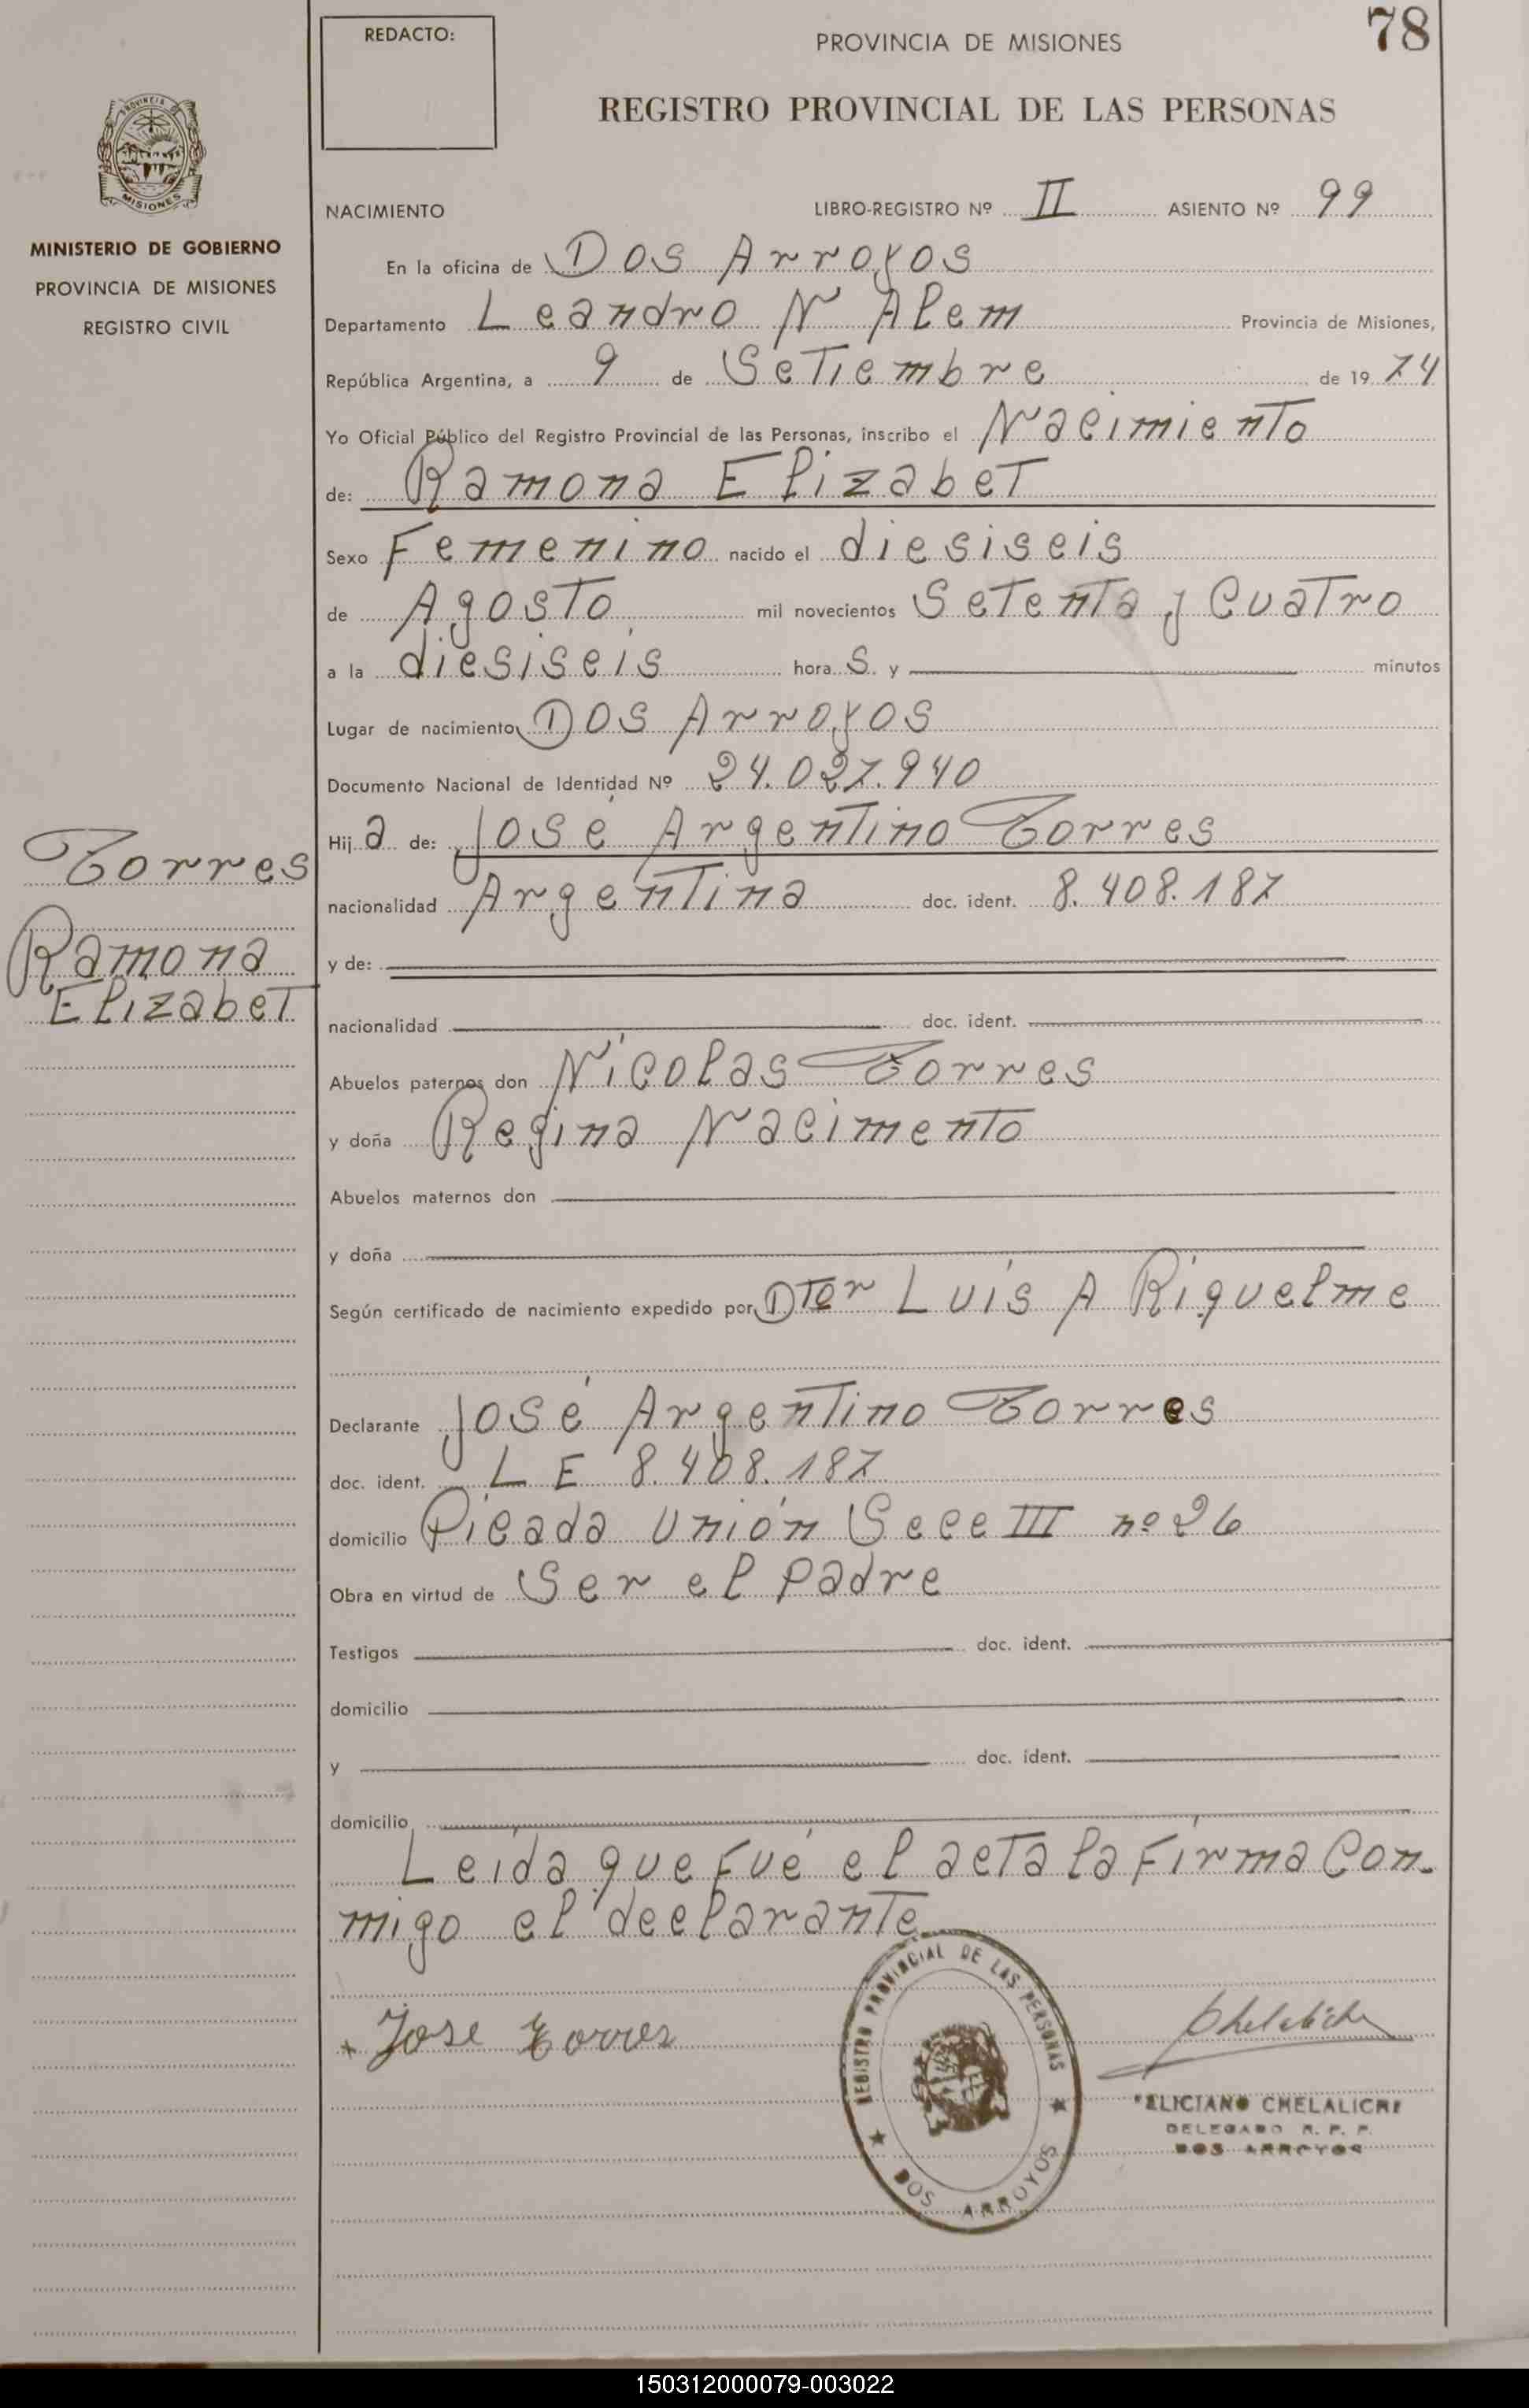 78
REDACTO:
PROVINCIA DE MISIONES
REGISTRO PROVINCIAL DE LAS PERSONAS
PROVINCIA DE
MISIONES
MINISTERIO DE GOBIERNO
PROVINCIA DE MISIONES
REGISTRO CIVIL
NACIMIENTO LIBRO-REGISTRO Nº II ASIENTO Nº 99
En la oficina de Dos Arroyos
Departamento Leandro N Alem Provincia de Misiones,
República Argentina, a 9 de Setiembre de 19 74
Yo Oficial Público del Registro Provincial de las Personas, inscribo el Nacimiento
de: Ramona Elizabet
Sexo Femenino nacido el diesiseis
de Agosto mil novecientos Setenta y Cuatro
a la diesiseis hora S y minutos
Lugar de nacimiento Dos Arroyos
Documento Nacional de Identidad Nº 24.027.940
Hij a de: José Argentino Torres
nacionalidad Argentina doc. ident. 8.408.187
y de:
nacionalidad doc. ident.
Torres
Ramona
Elizabet
Abuelos paternos don Nicolas Torres
y doña Regina Nacimento
Abuelos maternos don
y doña
Según certificado de nacimiento expedido por Dtor Luis A Riquelme
Declarante José Argentino Torres
doc. ident. L E 8.408.187
domicilio Picada Unión Secc III nº 26
Obra en virtud de Ser el padre
Testigos doc. ident.
domicilio
y doc. ident.
domicilio
Leída que fué el acta la Firma Con-
migo el declarante
Jose Torres
REGISTRO PROVINCIAL DE LAS PERSONAS
DOS ARROYOS
FELICIANO CHELALICHE
DELEGADO R. P. P.
DOS ARROYOS
150312000079-003022